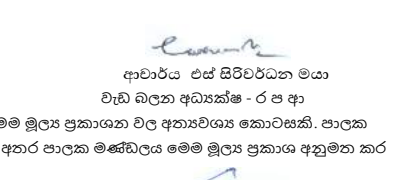 ආචාර්ය එස් සිරිවර්ධන මයා
වැඩ බලන අධ්‍යක්ෂ - ර ප ආ
මූල්‍ය ප්‍රකාශන වල අත්‍යවශ්‍ය කොටසකි. පාලක
අතර පාලක මණ්ඩලය මෙම මූල්‍ය ප්‍රකාශ අනුමත කර